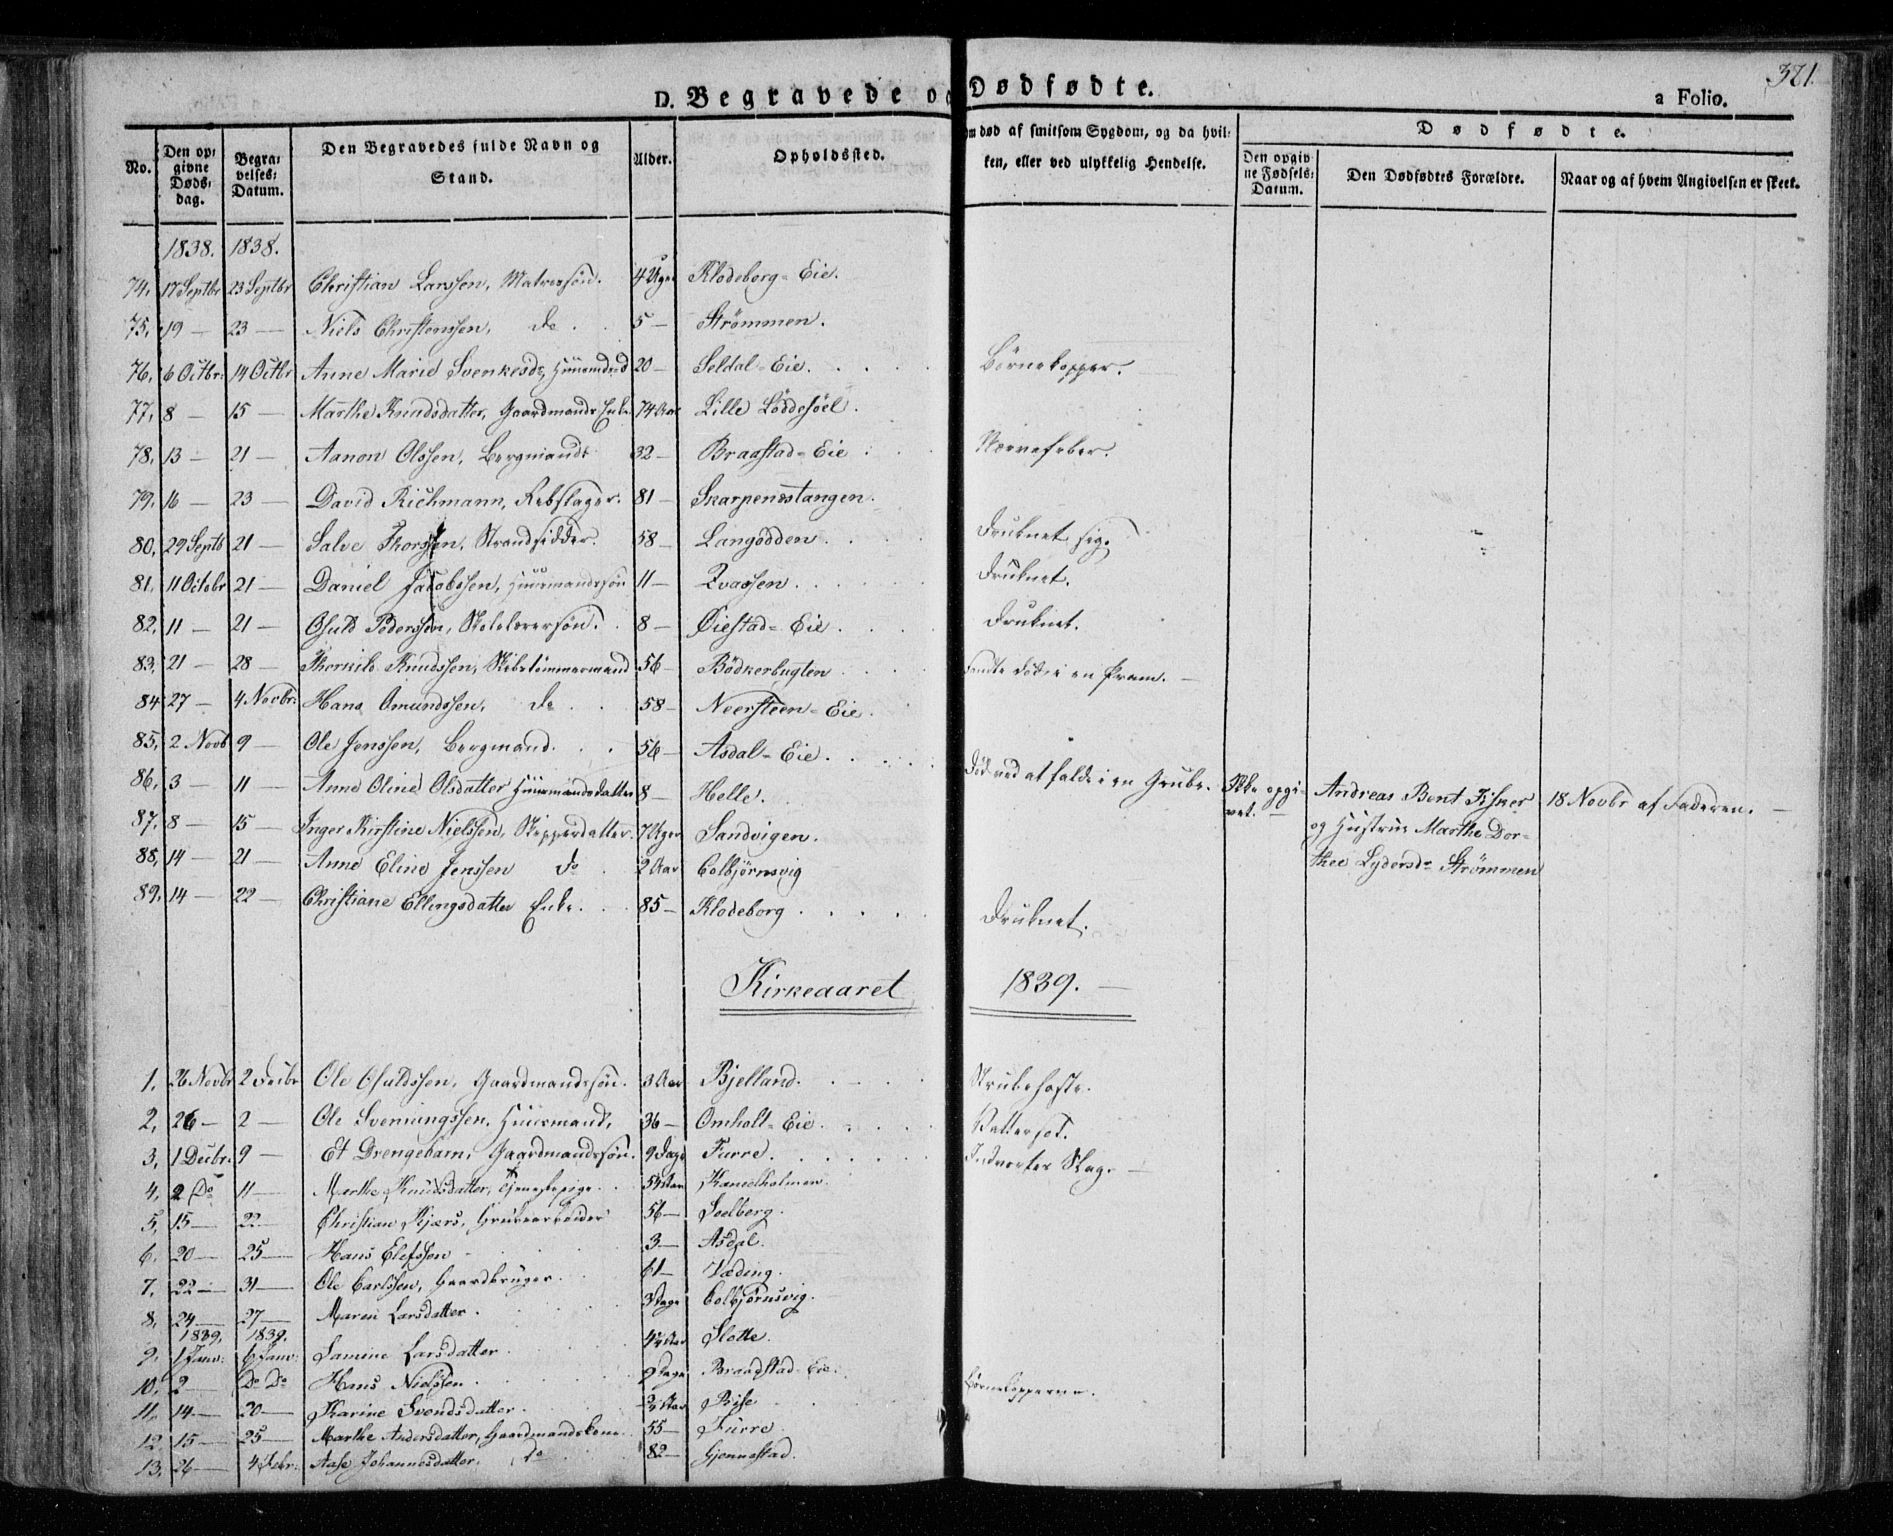 321.
D. Begravede o Dødfødte.
a Folio.
No.
Den op-
givne
Døds-
dag.
Begra-
velses-
Datum.
Den Begravedes fulde Navn og
Stand.
Alder.
Opholdssted.
m død af smitsom Sygdom, og da hvil-
ken, eller ved ulykkelig Hendelse.
Dødfødte.
Den opgiv-
ne Fødsels-
Datum.
Den Dødfødtes Forældre.
Naar og af hvem Angivelsen er skeet.
1838. 1838.
74. 17 Septbr 23 Septbr Christian Larssen, Matrossøn. 4 Uger Klodeborg-Eie.
75. 19 — 23 — Niels Christenssen, do. 5 — Strømmen.
76. 6 Octbr: 14 Octbr Anne Marie Svenkesdr, 20 — Seldal-Eie. Børnekopper.
77. 8 — 15 — Marthe Knudsdatter, Gaardmands Enke 74 Aar Lille Løddesøel.
78. 13 — 21 — Aanon Olssen, Bergmand 32 — Braastad-Eie Nervefeber.
79. 16 — 23 — David Richmann, Rebslager. 81 — Skarpenestangen.
80. 29 Septb 21 — Salve Thorssen, Strandsidder. 58 — Langødden. Druknet sig.
81. 11 Octobr 21 — Daniel Jacobssen, Huusmandssøn 11 — Qvassen. Druknet.
82. 11 — 21 — Osuld Pederssen, Skolelærersøn. 8 — Øiestad-Eie. Druknet.
83. 21 — 28 — Thorkild Knudssen, Skibstømmermand 56 — Bødkerbugten Fandtes død i en Pram. —
84 27 — 4 Novbr: Hans Omundssen, do. 58 — Neersteen-Eie.
85. 2 Novb 9 — Ole Jenssen, Bergmand. 56 — Asdal-Eie.
86. 3 — 11 — Anne Oline Olsdatter Huusmandsdatter 8 — Helle. Død ved at falde i en Grube.
87. 8 — 15 — Inger Kirstine Nielssen, Skipperdatter. 7 Uger Sandvigen.
88. 14 — 21 — Anne Eline Jenssen do 2 Aar Colbjørnsvig
89. 14 — 22 — Christiane Ellingsdatter Enke. 85 — Klodeborg. Druknet.
Ikke opgi-
vet. —
Andreas Bent Fisner
og Hustrue Marthe Dor-
thee Lydersdr Strømmen
18 Novbr af Faderen. —
Kirkeaaret 1839. —
1. 26 Novbr 2 Decbr Ole Osuldssen, Gaardmandssøn. 3 Aar Bjelland. Strubehoste.
2. 26 — 2 — Ole Svenningssen. Huusmand. 36 — Omholt-Eie.
3. 1 Decbr. 9 — Et Drengebarn, Gaardmandssøn. 9 Dage Furre. Indvortes Slag. —
4. 2 Do 11 — Marthe Knudsdatter, Tjenestepige. Kaneelholmen.
5. 15 — 22 — Christian Kjærs, Grubearbeider 56 — Soelberg.
6. 20 — 25 — Hans Elefssen 3 — Asdal.
7. 22 — 31 — Ole Carlssen, Gaardbruger. 61 — Væding.
8. 24 — 27 — Maren Larsdatter. 3 Dage Colbjørnsvig.
1839. 1839.
9. 1 Janr: 6 Janr: Samine Larsdatter. Slotte.
10. 2 — Do Do Hans Nielssen. 9 Dage Braadstad-Eie. Børnekopperne.
11. 14 — 20 — Karine Svendsdatter. Rise
12. 15 — 25 — Marthe Andersdatter, Gaardmandskone. 55 — Furre.
13. 26 — 4 Febr: Aase Johannesdatter. Do 82 — Gjennestad.